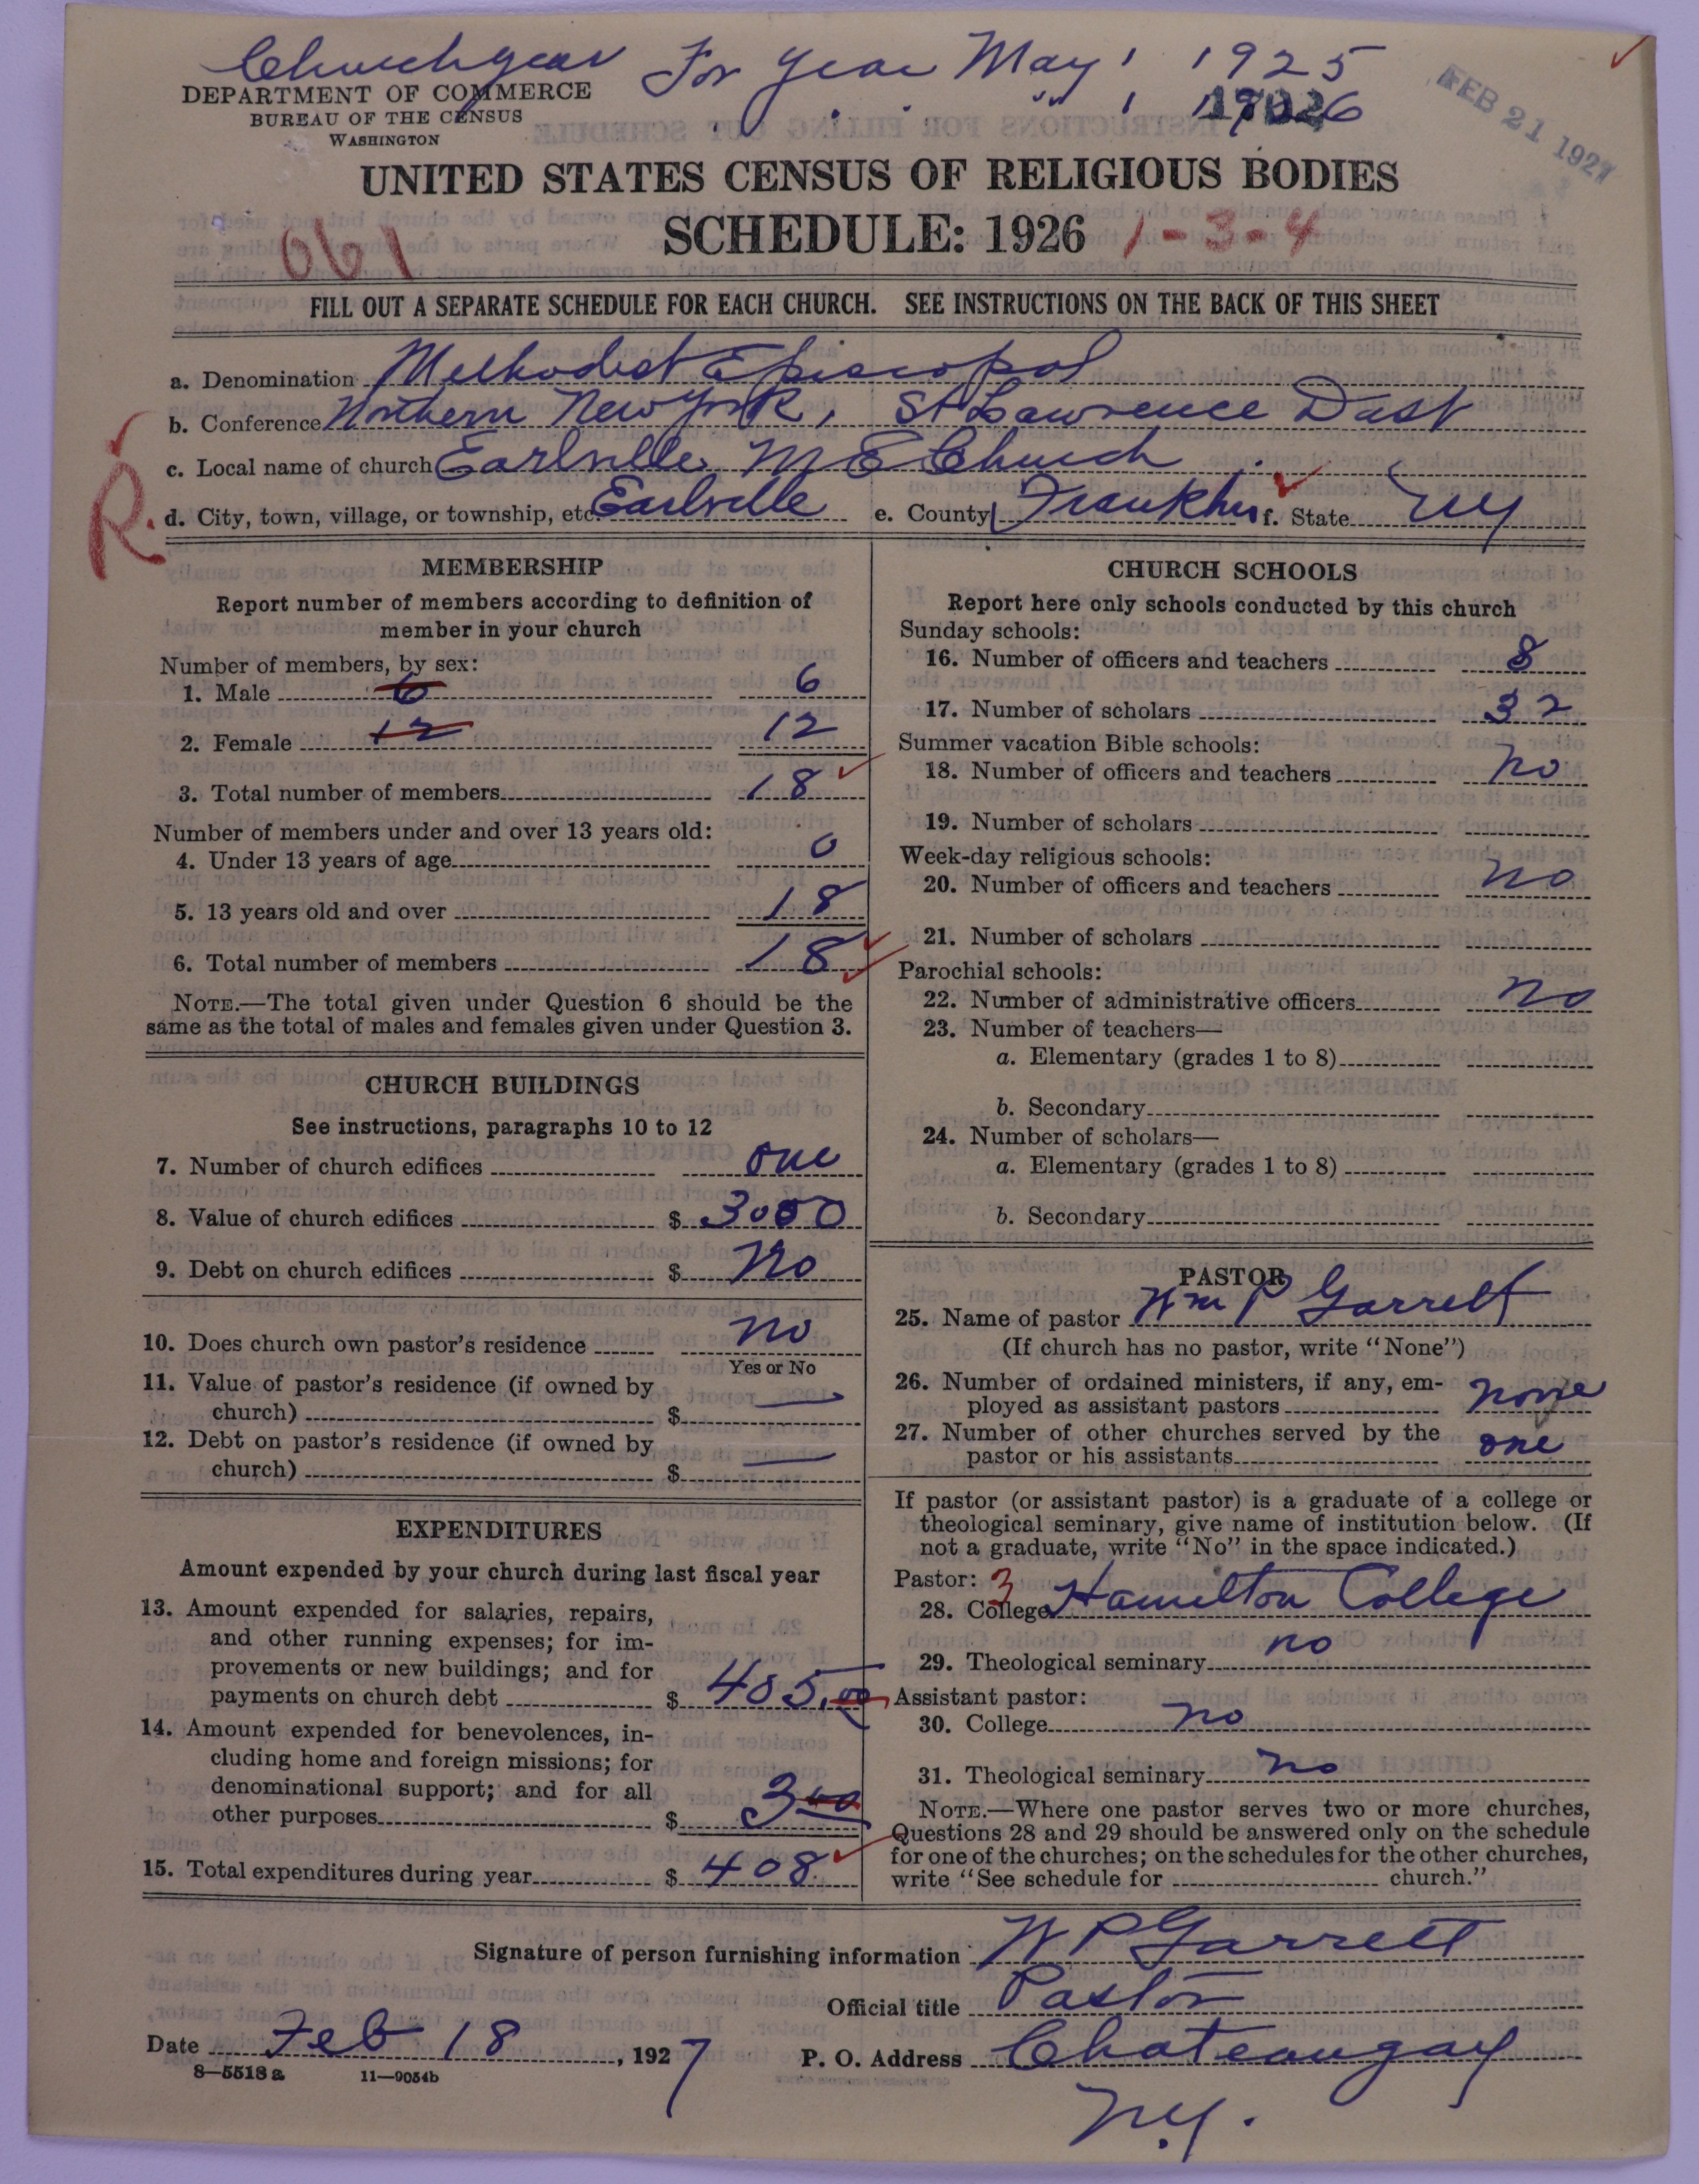 Church year For Year May 1 1925
" " 1 1926
FEB 21 1927
DEPARTMENT OF COMMERCE
BUREAU OF THE CENSUS
WASHINGTON
UNITED STATES CENSUS OF RELIGIOUS BODIES
SCHEDULE: 1926 1-3-4
061
FILL OUT A SEPARATE SCHEDULE FOR EACH CHURCH. SEE INSTRUCTIONS ON THE BACK OF THIS SHEET
a. Denomination Methodist Episcopal
b. Conference Northern New York, St Lawrence Dist
c. Local name of church Earlville M E Church
R. d. City, town, village, or township, etc. Earlville e. County Franklin f. State NY
MEMBERSHIP
Report number of members according to definition of
member in your church
Number of members, by sex:
1. Male 6 6
2. Female 12 12
3. Total number of members 18
Number of members under and over 13 years old:
4. Under 13 years of age 0
5. 13 years old and over 18
6. Total number of members 18
NOTE.—The total given under Question 6 should be the
same as the total of males and females given under Question 3.
CHURCH BUILDINGS
See instructions, paragraphs 10 to 12
7. Number of church edifices one
8. Value of church edifices $ 3000
9. Debt on church edifices $ No
10. Does church own pastor's residence no
Yes or No
11. Value of pastor's residence (if owned by
church) $ —
12. Debt on pastor's residence (if owned by
church) $ —
EXPENDITURES
Amount expended by your church during last fiscal year
13. Amount expended for salaries, repairs,
and other running expenses; for im-
provements or new buildings; and for
payments on church debt $ 405.00
14. Amount expended for benevolences, in-
cluding home and foreign missions; for
denominational support; and for all
other purposes $ 3 00
15. Total expenditures during year $ 408
CHURCH SCHOOLS
Report here only schools conducted by this church
Sunday schools:
16. Number of officers and teachers 8
17. Number of scholars 32
Summer vacation Bible schools:
18. Number of officers and teachers no
19. Number of scholars
Week-day religious schools:
20. Number of officers and teachers no
21. Number of scholars
Parochial schools:
22. Number of administrative officers no
23. Number of teachers—
a. Elementary (grades 1 to 8)
b. Secondary
24. Number of scholars—
a. Elementary (grades 1 to 8)
b. Secondary
PASTOR
25. Name of pastor Wm P Garrett
(If church has no pastor, write "None")
26. Number of ordained ministers, if any, em-
ployed as assistant pastors none
27. Number of other churches served by the
pastor or his assistants one
If pastor (or assistant pastor) is a graduate of a college or
theological seminary, give name of institution below. (If
not a graduate, write "No" in the space indicated.)
Pastor: 3
28. College Hamilton College
29. Theological seminary no
Assistant pastor:
30. College no
31. Theological seminary no
NOTE.—Where one pastor serves two or more churches,
Questions 28 and 29 should be answered only on the schedule
for one of the churches; on the schedules for the other churches,
write "See schedule for church."
Signature of person furnishing information W P Garrett
Official title Pastor
Date Feb 18, 1927 P. O. Address Chateaugay
N.Y.
8—5518 a 11—9054b